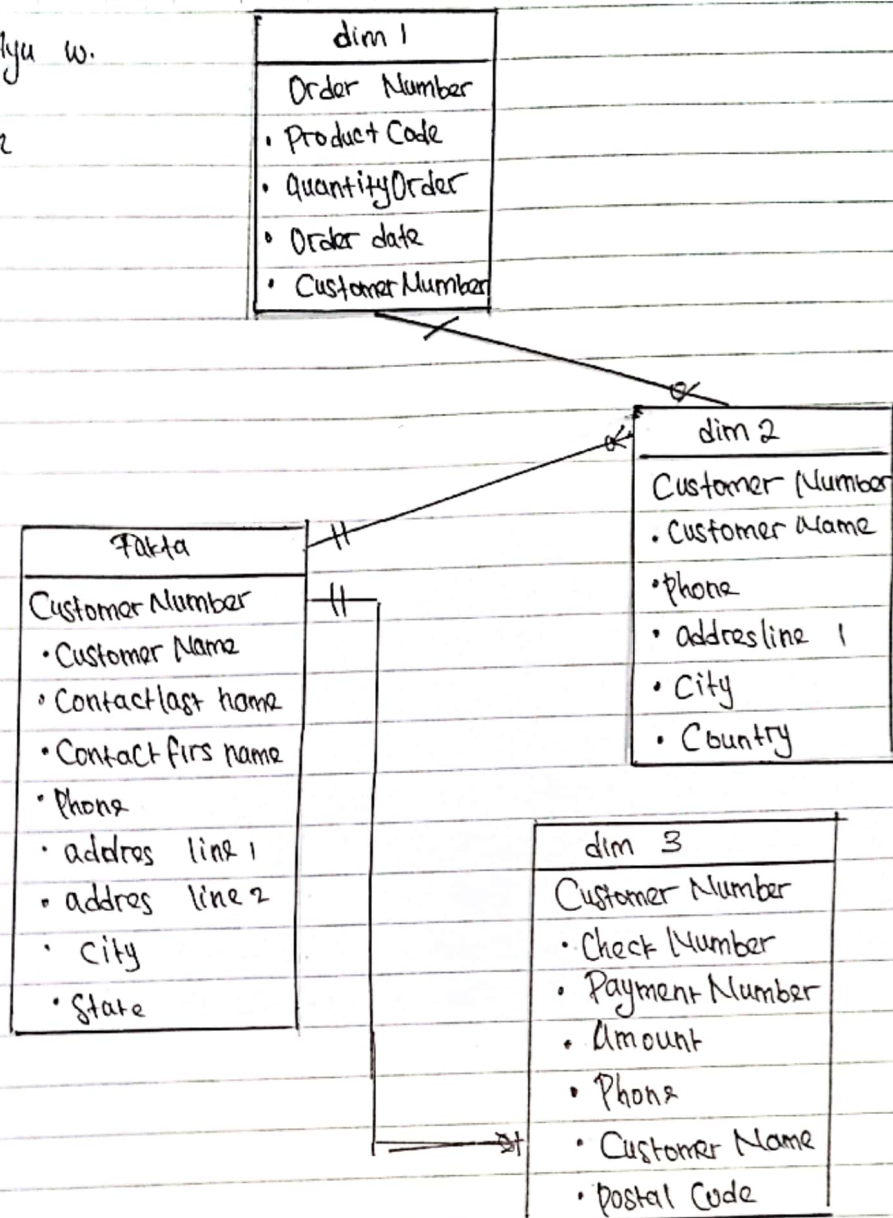 w.
dim 1
Order Number
• Product Code
• QuantityOrder
• Order date
• CustomerNumber
dim 2
Customer Number
• Customer Name
• Phone
• addresline 1
• City
• Country
Fakta
Customer Number
• Customer Name
• Contactlast name
• Contact firs name
• Phone
• addres line 1
• addres line 2
• City
• State
dim 3
Customer Number
• Check Number
• Payment Number
• Amount
• Phone
• Customer Name
• Postal Code